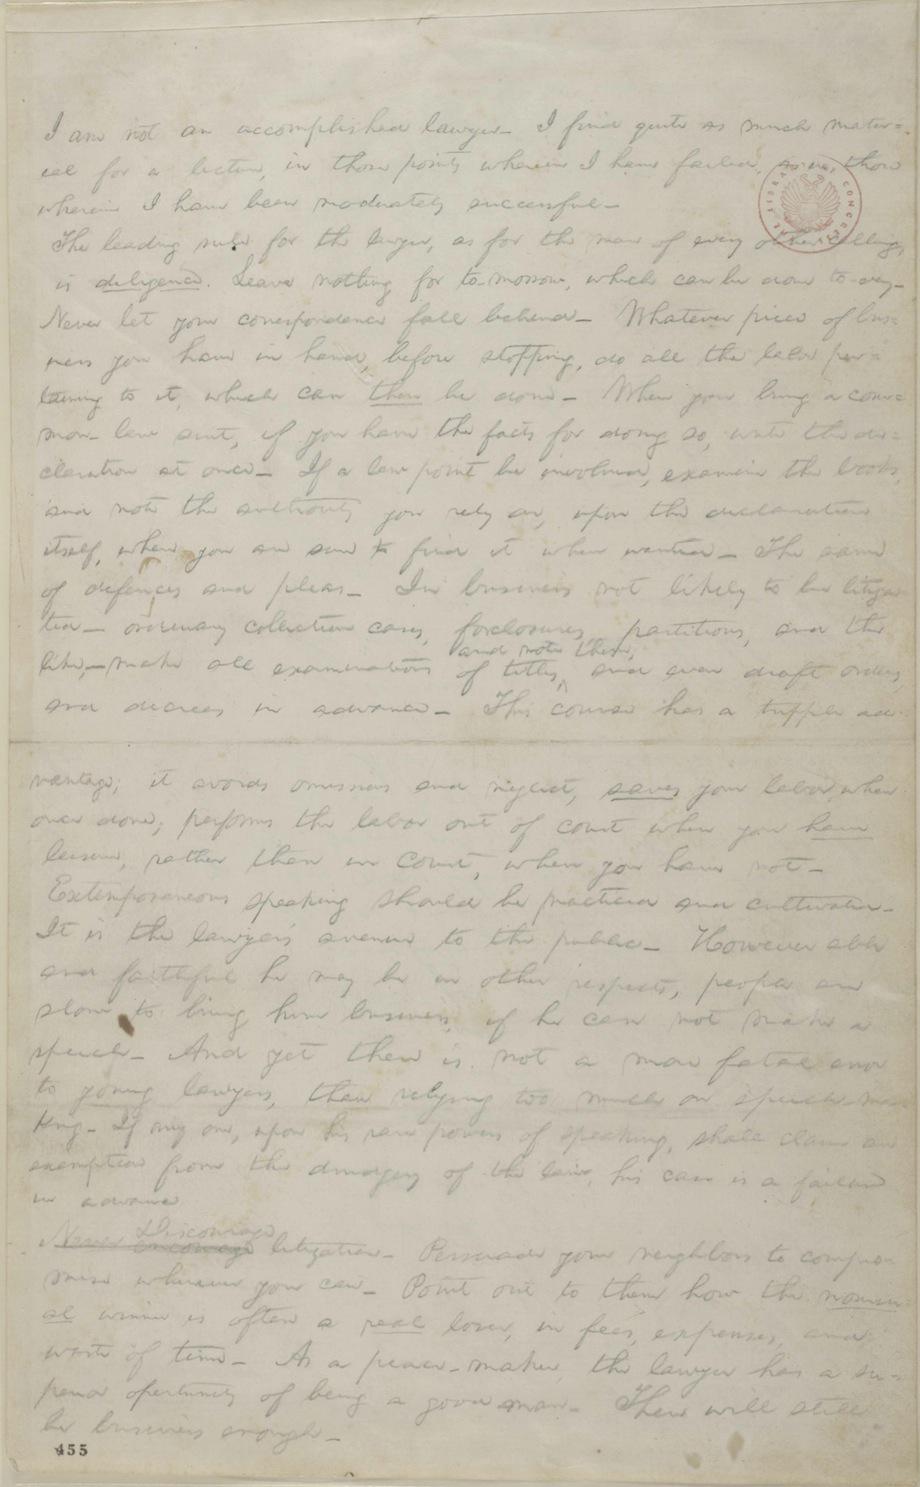 I am not an accomplished lawyer - I find quite as much mater=
ial for a lecture, in those points wherein I have failed, as in those
wherein I have been moderately successful -
The leading rule for the lawyer, as for the man of every other calling,
is diligence. Leave nothing for to-morrow, which can be done to-day -
Never let your correspondence fall behind - Whatever piece of bus=
iness you have in hand, before stopping, do all the labor per=
taining to it, which can then be done - When you bring a com=
mon-law suit, if you have the facts for doing so, write the de=
claration at once - If a law point be involved, examine the books,
and note the authority you rely on, upon the declaration
itself, where you are sure to find it when wanted - The same
of defences and pleas - In business not likely to be litiga
ted - ordinary collection cases, foreclosures, partitions, and the
like, - make all examinations of titles, and note them, and even draft orders,
and decrees in advance - This course has a tripple ad-
vantage; it avoids omissions and neglect, saves your labor, when
once done; performs the labor out of court when you have
leisure, rather than in court, when you have not -
Extemporaneous speaking should be practiced and cultivated -
It is the lawyer's avenue to the public - However able
and faithful he may be in other respects, people are
slow to bring him business, if he can not make a
speech - And yet there is not a more fatal error
to young lawyers, than relying too much on speech-ma-
king - If any one, upon his rare powers of speaking, shall claim an
exemption from the drudgery of the law, his case is a failure
in advance
Never encourage Discourage litigation - Persuade your neighbors to compro-
mise whenever you can - Point out to them how the nomin-
al winner is often a real loser, in fees, expenses, and
waste of time - As a peace-maker, the lawyer has a su-
perior opertunity of being a good man - There will still
be business enough -
455